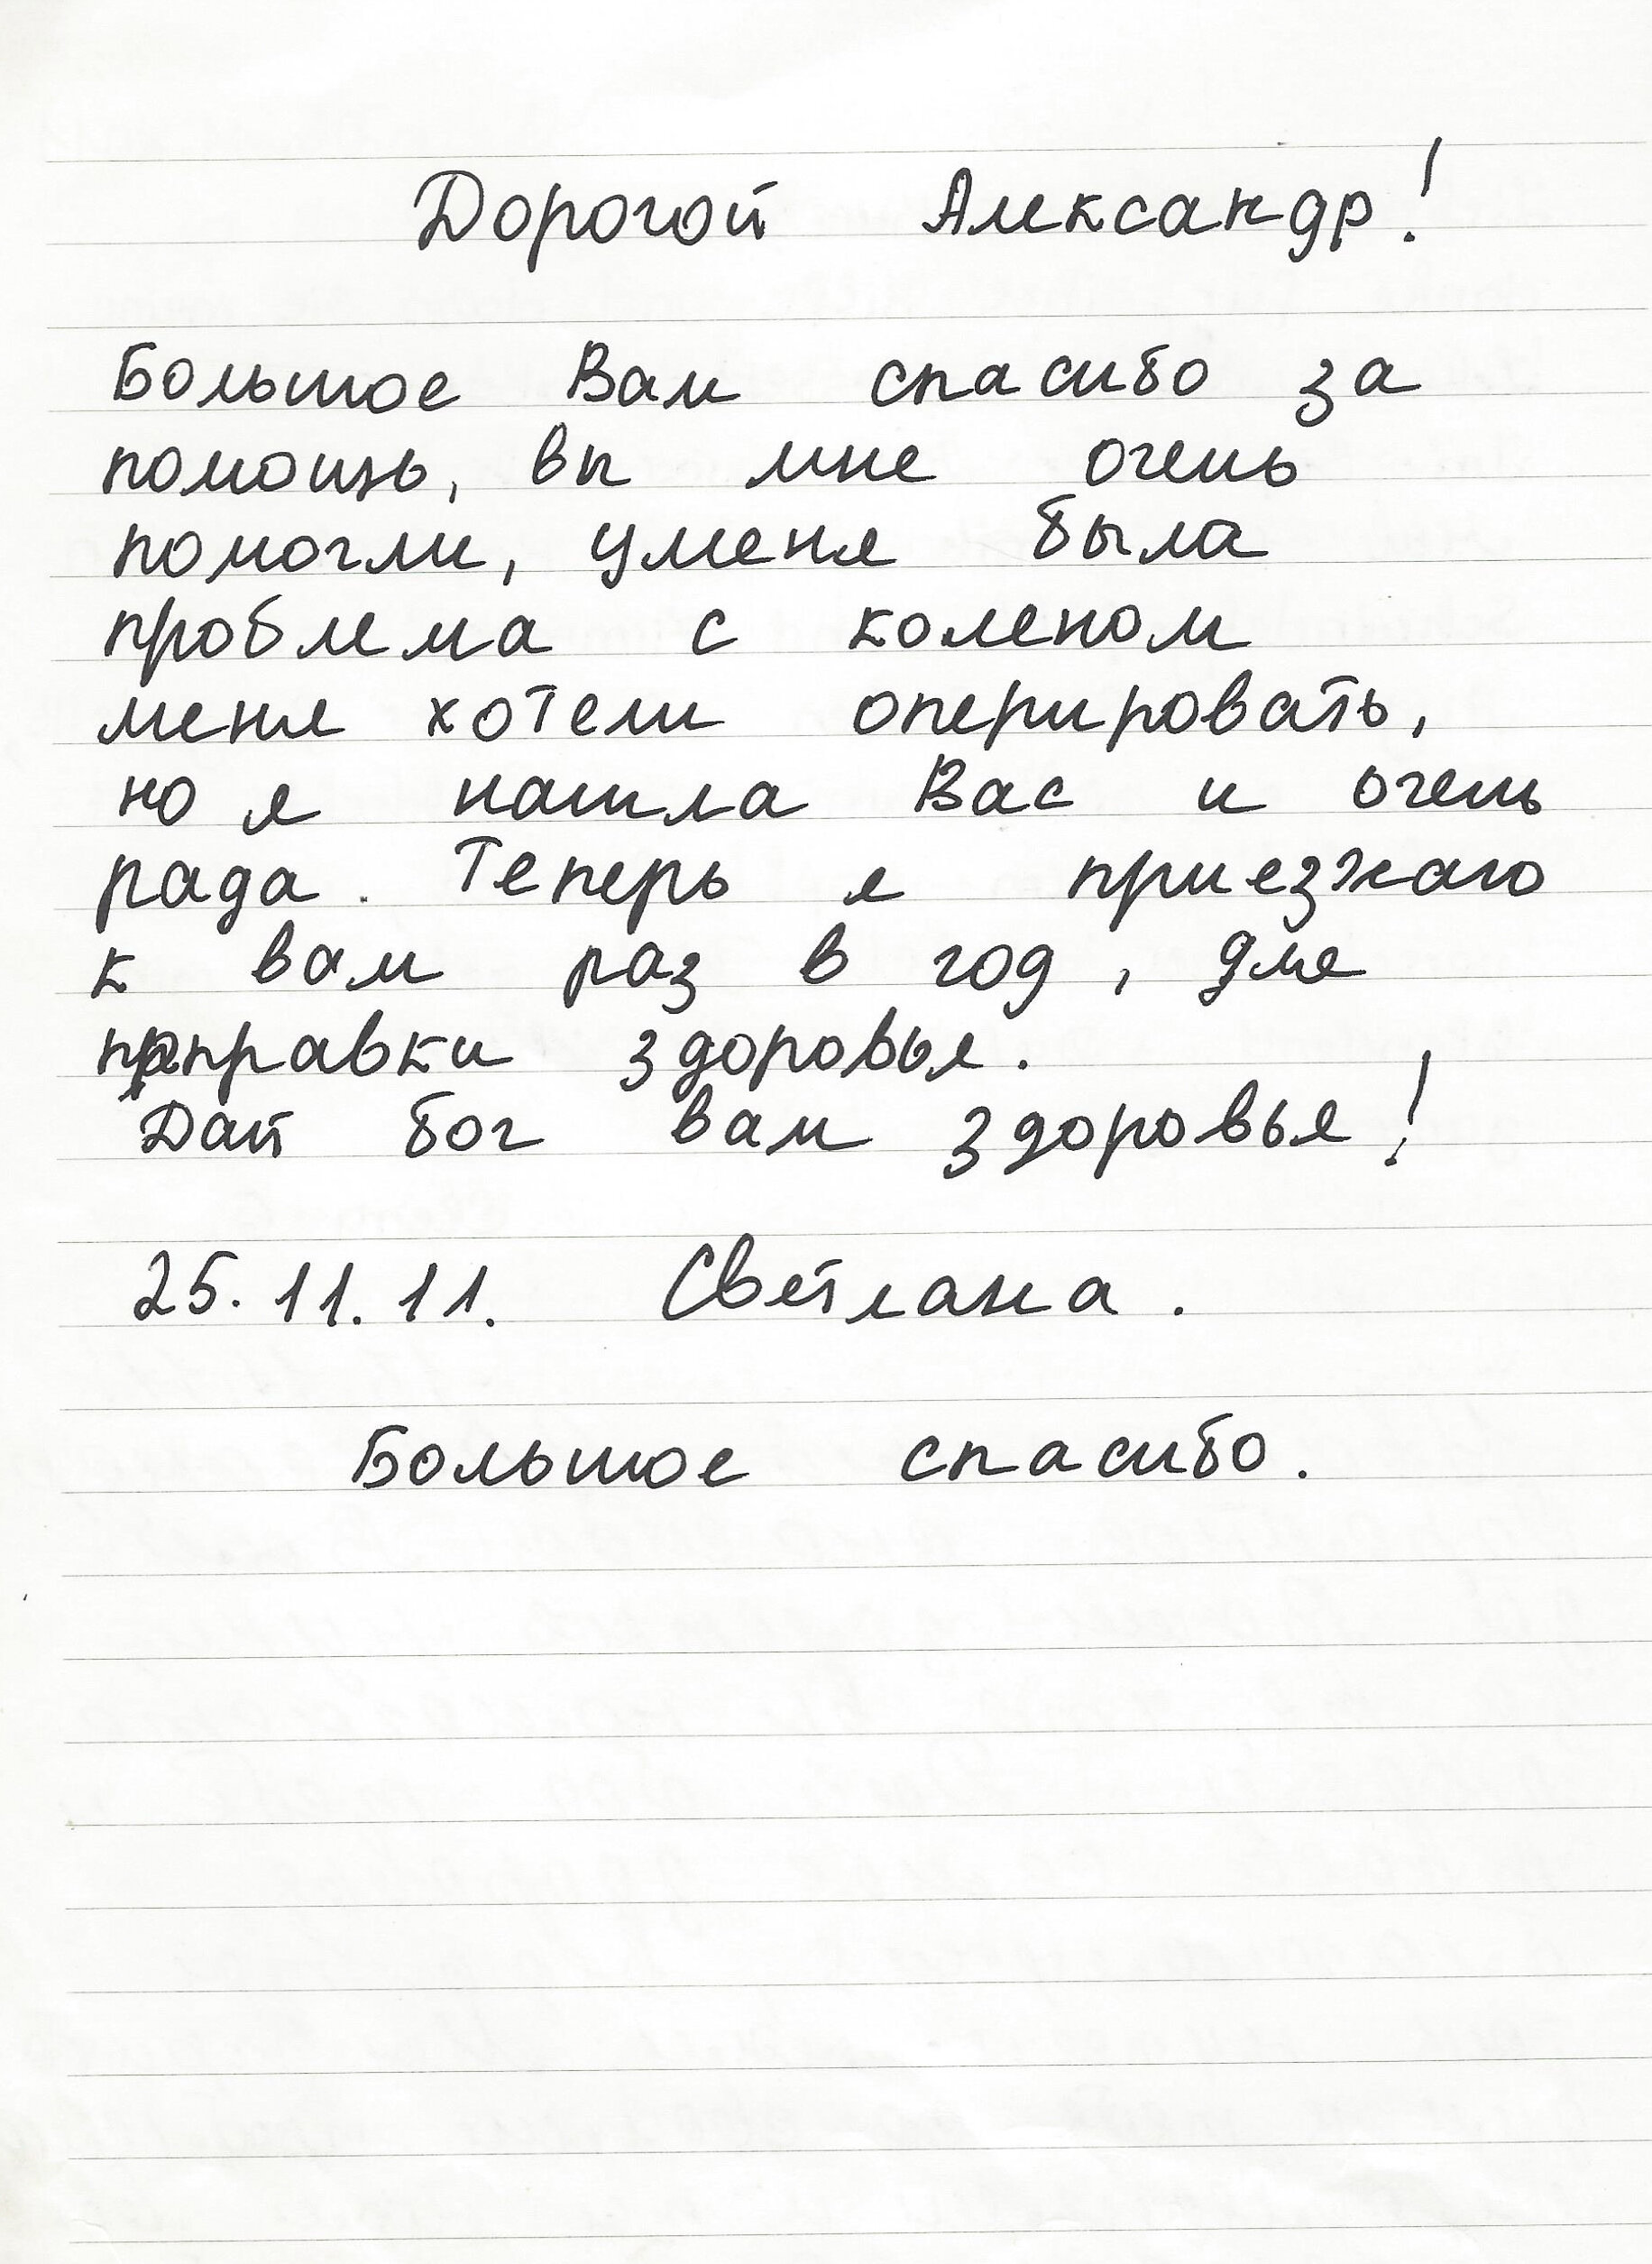 Дорогой Александр!
Большое Вам спасибо за
помощь, вы мне очень
помогли, уменя была
проблема с коленом
меня хотели оперировать,
но я нашла Вас и очень
рада. Теперь я приезжаю
к вам раз в год, для
поправки здоровья.
Дай бог вам здоровья!
25.11.11. Светлана.
Большое спасибо.